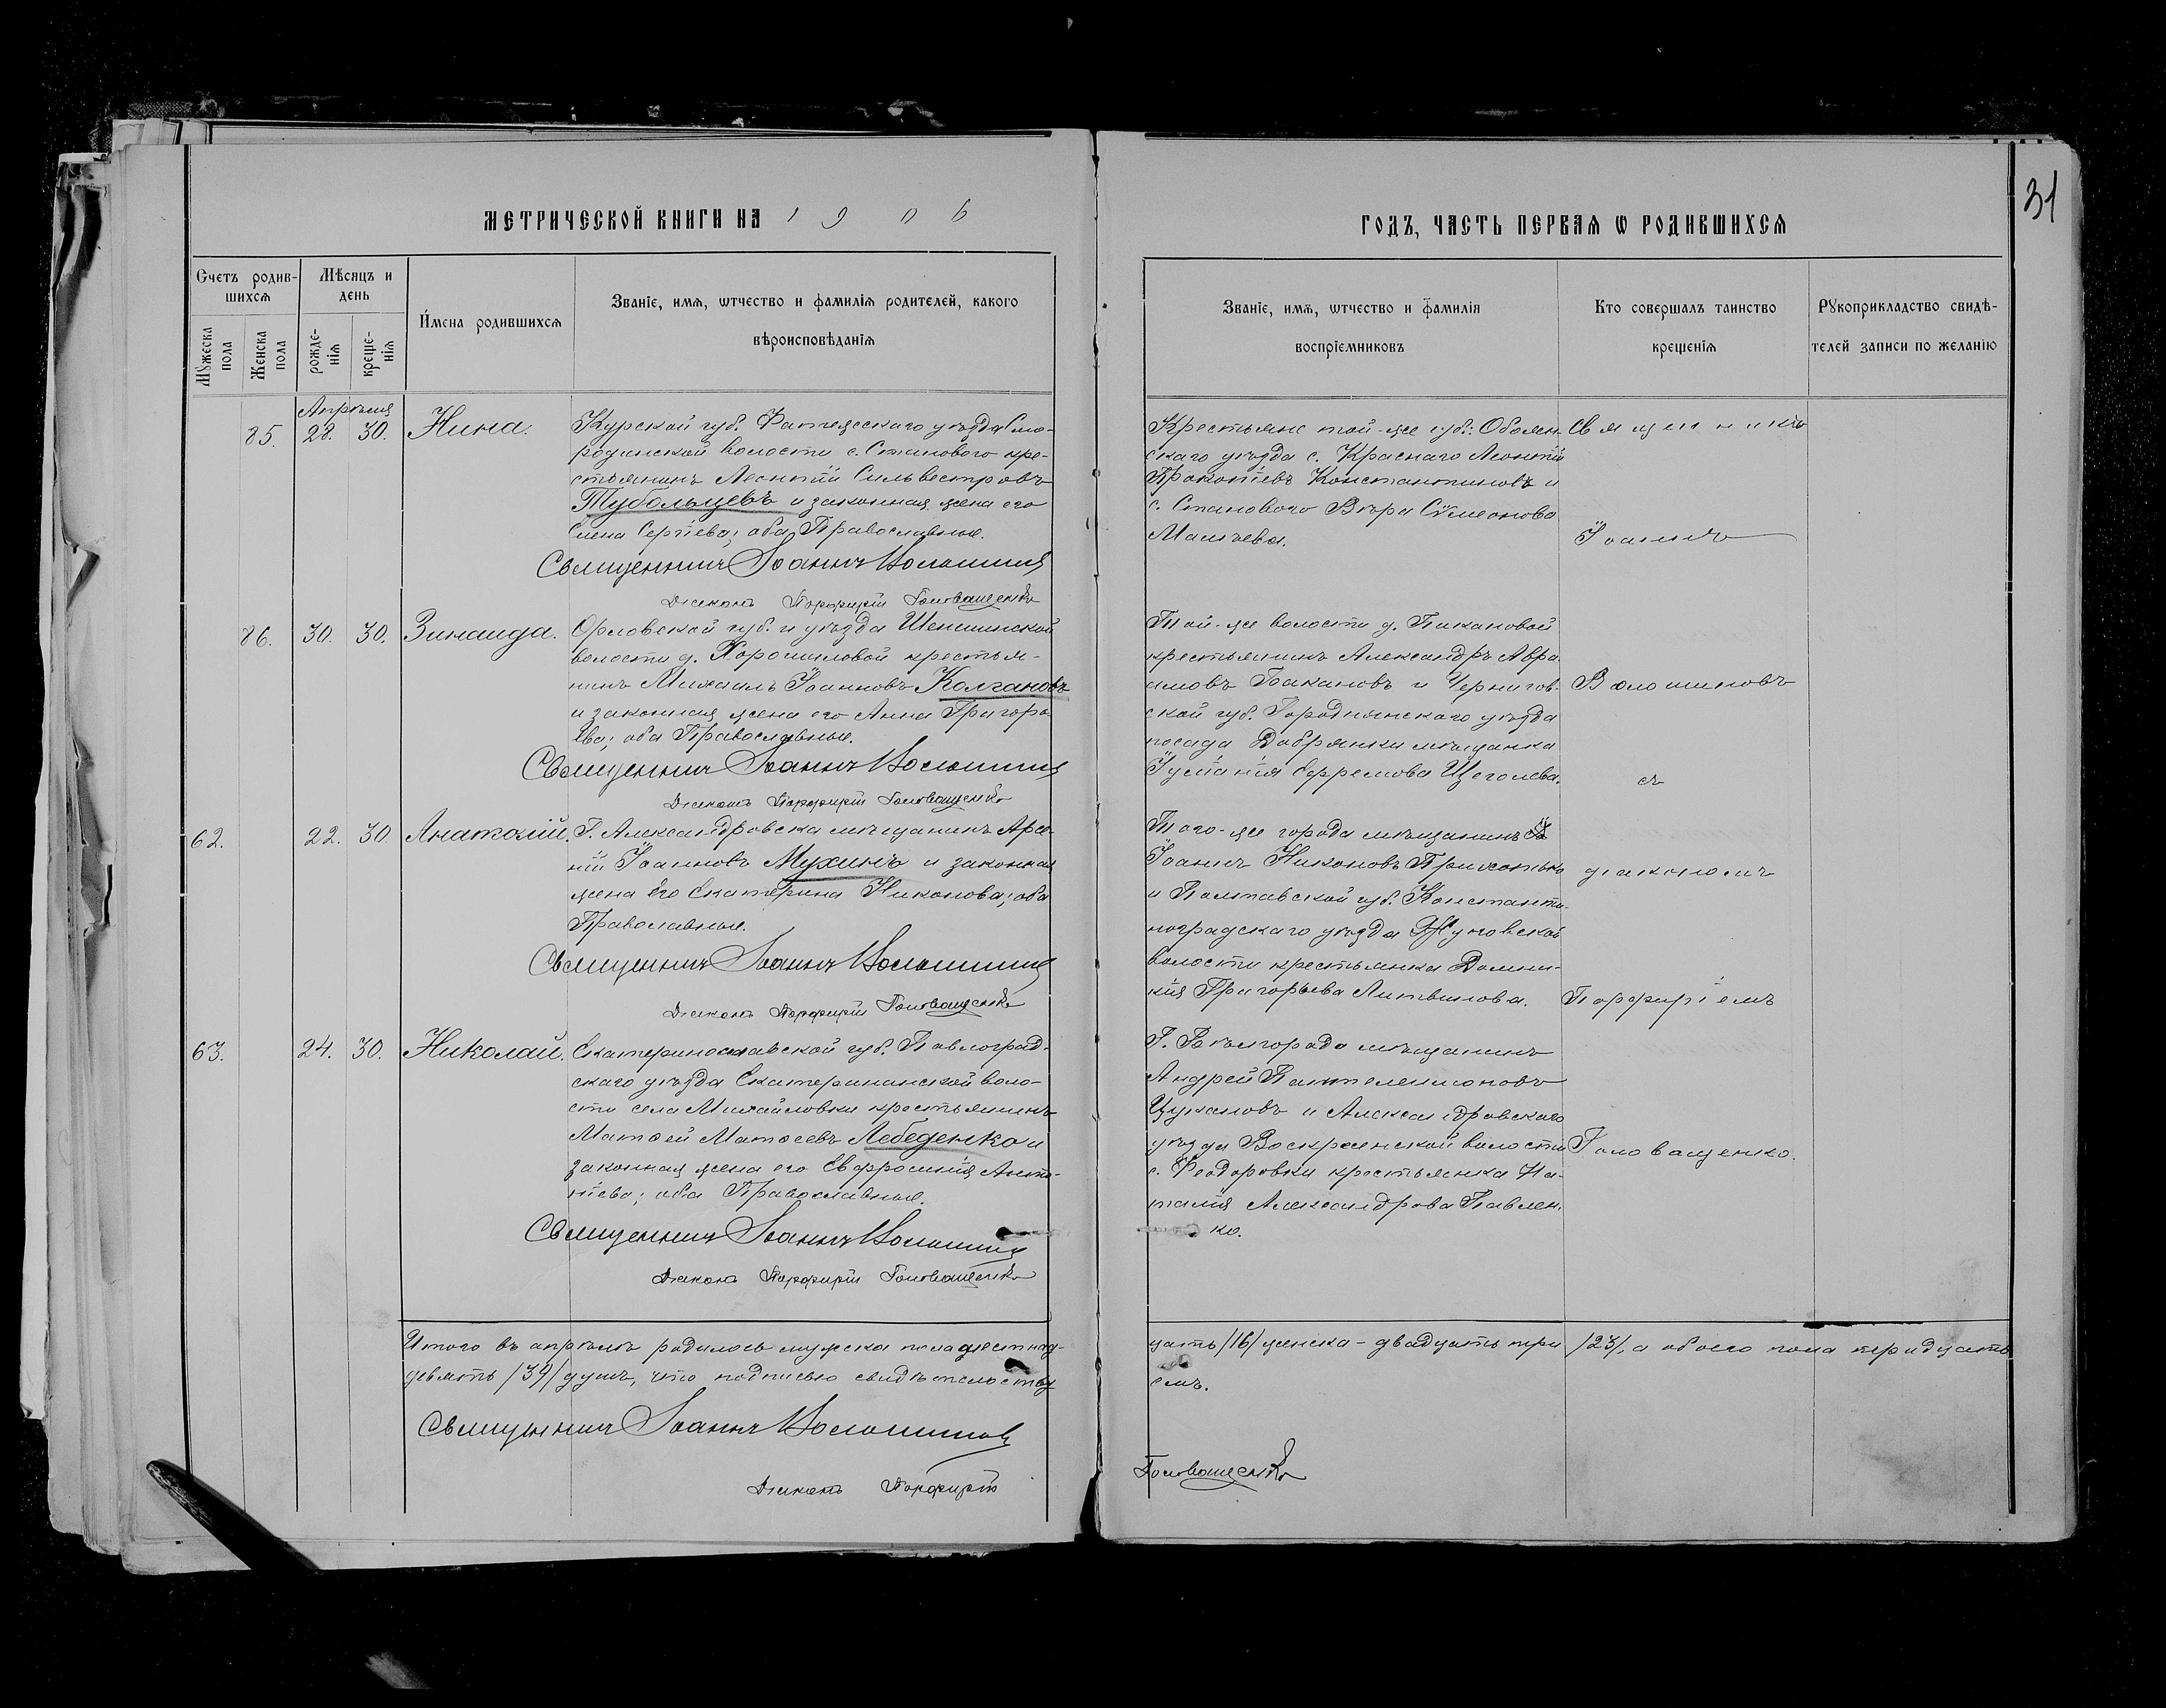 31
МЕТРИЧЕСКОЙ КНИГИ НА 1906
ГОДЪ, ЧАСТЬ ПЕРВАѦ Ѡ РОДИВШИХСѦ
Счетъ родив-
шихсѧ
Мѣсяцъ и
день
Мꙋжеска
пола
Женска
пола
рожде-
нїѧ
креще-
нїѧ
Имена родившихсѧ
Званїе, имѧ, ѡтчество и фамилїѧ родителей, какого
вѣроисповѣданїѧ
Званїе, имѧ, ѡтчество и фамилїѧ
воспрїемниковъ
Кто совершалъ таинство
крещенїѧ
Рꙋкоприкладство свидѣ-
телей записи по желанїю
Апрѣля
85. 28. 30. Нина.
Курской губ. Фатежскаго уѣзда Смо-
родинской волости с. Становаго кре-
стьянинъ Леонтій Сильвестровъ
Тубольцевъ и законная жена его
Елена Сергіева; оба Православные.
Священникъ Іоаннъ Волошиновъ
Діаконъ Порфирій Головащенко
Крестьяне той-же губ.: Обоян-
скаго уѣзда с. Краснаго Леонтій
Прокопіевъ Константиновъ и
с. Становаго Вѣра Сѵмеонова
86. 30. 30. Зинаида.
Орловской губ. и уѣзда Шеншинской
волости д. Хорошиловой крестья-
нинъ Михаилъ Іоанновъ Колгановъ
и законная жена его Анна Григорь-
ева; оба Православные.
Священникъ Іоаннъ Волошиновъ
Діаконъ Порфирій Головащенко
Той-же волости д. Пикановой
крестьянинъ Александръ Авра-
амовъ Баканов и Чернигов-
ской губ. Городнянскаго уѣзда
посада Добрянки мѣщанка
Іуліанія Ефремова Щеголева.
62. 22. 30 Анатолій.
Г. Александровска мѣщанинъ Арсе-
ній Іоанновъ Мухинъ и законная
жена его Екатерина Никонова; оба
Православные.
Священникъ Іоаннъ Волошиновъ
Діаконъ Порфирій Головащенко
Того-же города мѣщанинъ
Іоаннъ Никоновъ Прихотько
и Полтавской губ. Константи-
ноградскаго уѣзда
волости крестьянка Домни-
кія Григорьева Литвинова.
63. 24. 30. Николай.
Екатеринославской губ. Павлоград-
скаго уѣзда Екатерининской воло-
сти села Михайловки крестьянинъ
Матѳей Матѳеевъ Лебеденко и
законная жена его Евфросинія Анто-
ніева; оба Православные.
Священникъ Іоаннъ Волошиновъ
Діаконъ Порфирій Головащенко
Г. Бѣлгорода мѣщанинъ
Андрей Пантелеимоновъ
Цукановъ и Александровскаго
уѣзда Воскресенской волости
с. Ѳеодоровки крестьянка На-
талія Александрова Павлен-
ко.
Священникъ
Іоаннъ
Волошиновъ
съ
діакономъ
Порфиріемъ
Головащенко.
Итого въ апрѣлѣ родилось мужска пола шестнад-
цать /16/ женска - двадцать три /23/, а обоего пола тридцать
девять /39/ душъ, что подписью свидѣтельству-
емъ.
Священникъ Іоаннъ Волошиновъ
Діаконъ Порфирій Головащенко